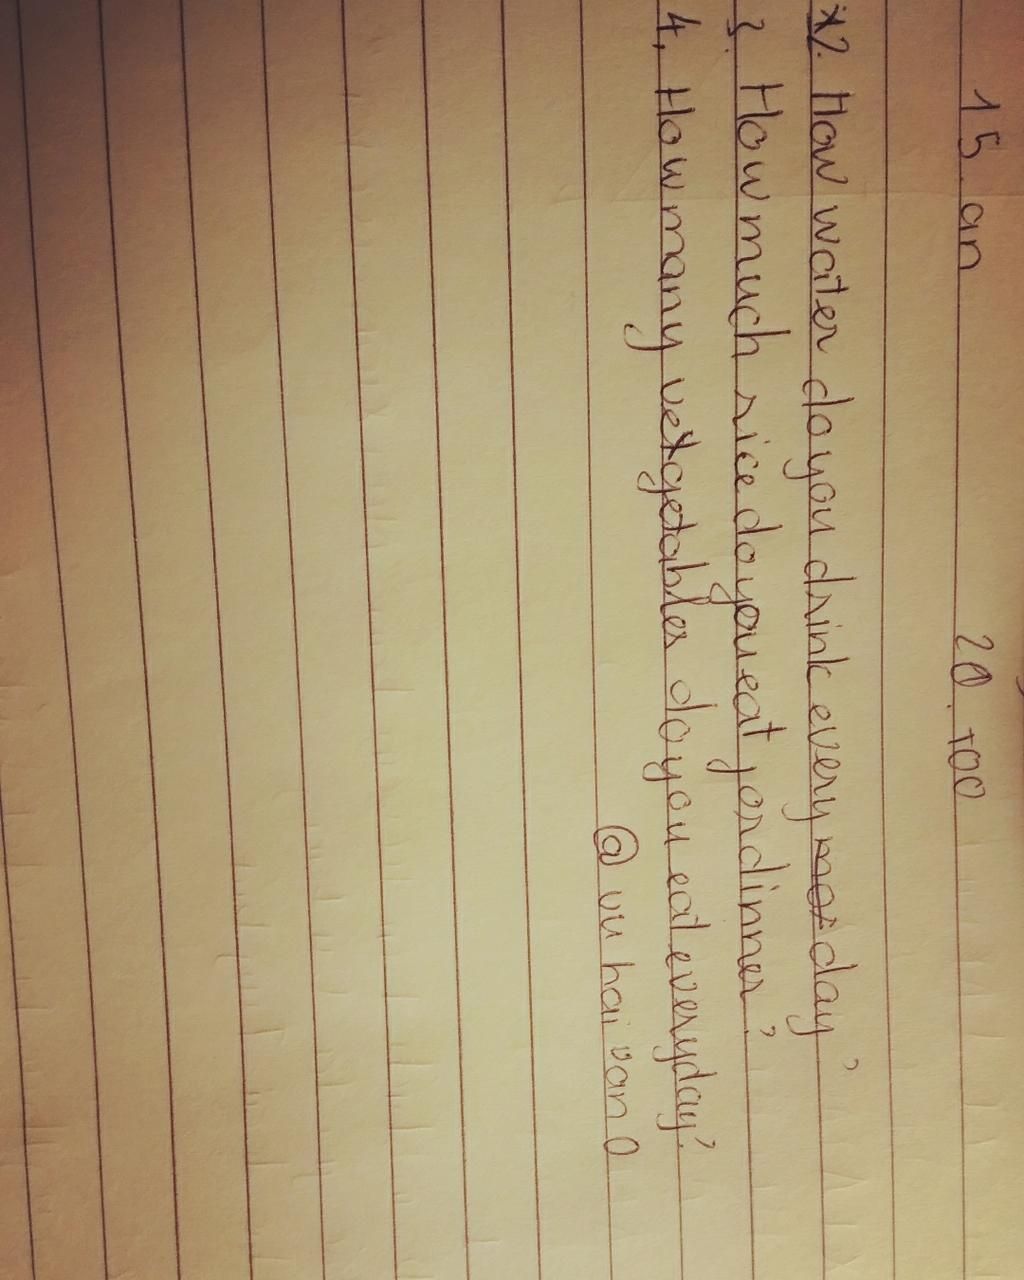 15. an 20. too
*2. How water do you drink every day?
3. How much rice do you eat for dinner?
4, How many vetgetables do you eat everyday?
@ vu hai van 0